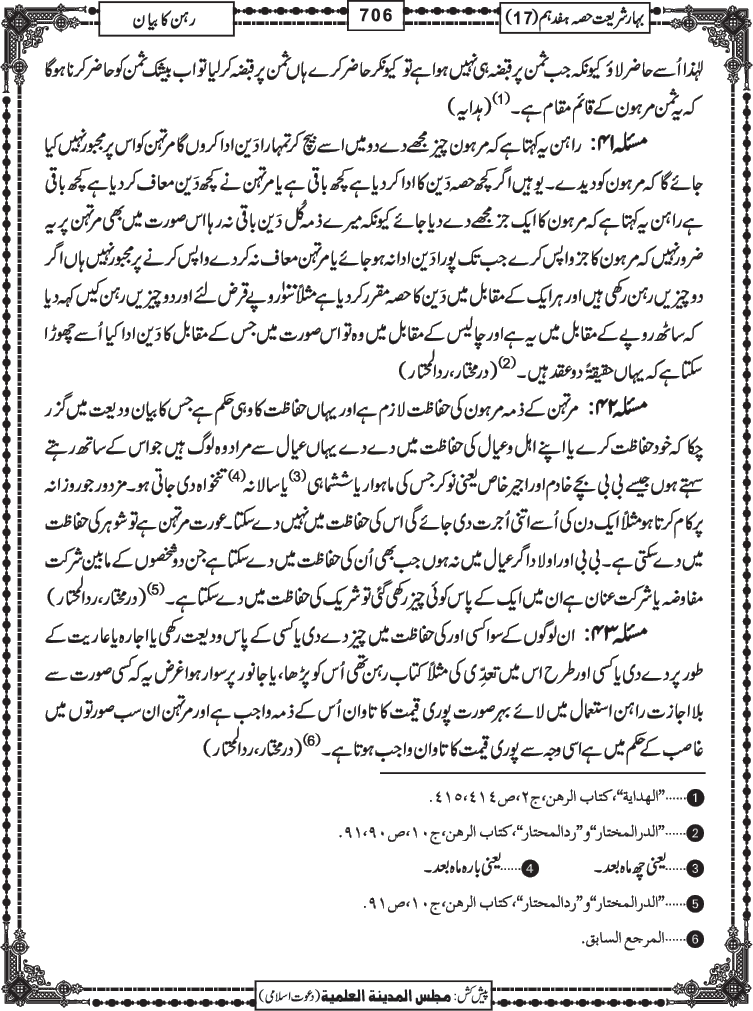 بہار شریعت حصہ ہفدہم (17)
706
رہن کا بیان
لہٰذا اُسے حاضر لاؤ کیونکہ جب ثمن پر قبضہ ہی نہیں ہوا ہے تو کیونکر حاضر کرے ہاں ثمن پر قبضہ کر لیا تو اب بیشک ثمن کو حاضر کرنا ہوگا
کہ یہ ثمن مرہون کے قائم مقام ہے۔(1) (ہدایہ)
مسئلہ ۴۱: راہن یہ کہتا ہے کہ مرہون چیز مجھے دے دو میں اسے بیچ کر تمہارا دَین ادا کروں گا مرتہن کو اس پر مجبور نہیں کیا
جائے گا کہ مرہون کو دیدے۔ یوہیں اگر کچھ حصہ دَین کا ادا کر دیا ہے کچھ باقی ہے یا مرتہن نے کچھ دَین معاف کر دیا ہے کچھ باقی
ہے راہن یہ کہتا ہے کہ مرہون کا ایک جز مجھے دے دیا جائے کیونکہ میرے ذمہ کُل دَین باقی نہ رہا اس صورت میں بھی مرتہن پر یہ
ضرور نہیں کہ مرہون کا جز واپس کرے جب تک پورا دَین ادا نہ ہو جائے یا مرتہن معاف نہ کر دے واپس کرنے پر مجبور نہیں ہاں اگر
دو چیزیں رہن رکھی ہیں اور ہر ایک کے مقابل میں دَین کا حصہ مقرر کر دیا ہے مثلاً سَو۱۰۰ روپے قرض لئے اور دو چیزیں رہن کیں کہہ دیا
کہ ساٹھ روپے کے مقابل میں یہ ہے اور چالیس کے مقابل میں وہ تو اس صورت میں جس کے مقابل کا دَین ادا کیا اُسے چھوڑا
سکتا ہے کہ یہاں حقیقۃً دو عقد ہیں۔(2) (درمختار، ردالمحتار)
مسئلہ ۴۲: مرتہن کے ذمہ مرہون کی حفاظت لازم ہے اور یہاں حفاظت کا وہی حکم ہے جس کا بیان ودیعت میں گزر
چکا کہ خود حفاظت کرے یا اپنے اہل و عیال کی حفاظت میں دے دے یہاں عیال سے مراد وہ لوگ ہیں جو اس کے ساتھ رہتے
سہتے ہوں جیسے بی بی بچے خادم اور اجیر خاص یعنی نوکر جس کی ماہوار یا ششماہی(3) یا سالانہ(4) تنخواہ دی جاتی ہو۔ مزدور جو روزانہ
پر کام کرتا ہو مثلاً ایک دن کی اُسے اتنی اُجرت دی جائے گی اس کی حفاظت میں نہیں دے سکتا۔ عورت مرتہن ہے تو شوہر کی حفاظت
میں دے سکتی ہے۔ بی بی اور اولاد اگر عیال میں نہ ہوں جب بھی اُن کی حفاظت میں دے سکتا ہے جن دو شخصوں کے مابین شرکت
مفاوضہ یا شرکت عنان ہے ان میں ایک کے پاس کوئی چیز رکھی گئی تو شریک کی حفاظت میں دے سکتا ہے۔(5) (درمختار، ردالمحتار)
مسئلہ ۴۳: ان لوگوں کے سوا کسی اور کی حفاظت میں چیز دے دی یا کسی کے پاس ودیعت رکھی یا اجارہ یا عاریت کے
طور پر دے دی یا کسی اور طرح اس میں تعدِّی کی مثلاً کتاب رہن تھی اُس کو پڑھا، یا جانور پر سوار ہوا غرض یہ کہ کسی صورت سے
بلا اجازت راہن استعمال میں لائے بہرصورت پوری قیمت کا تاوان اُس کے ذمہ واجب ہے اور مرتہن ان سب صورتوں میں
غاصب کے حکم میں ہے اسی وجہ سے پوری قیمت کا تاوان واجب ہوتا ہے۔(6) (درمختار، ردالمحتار)
1 ......"الھدایة"، کتاب الرھن، ج۲، ص۴۱۴، ۴۱۵.
2 ......"الدرالمختار" و"ردالمحتار"، کتاب الرھن، ج۱۰، ص۹۰، ۹۱.
3 ......یعنی چھ ماہ بعد۔ 4 ......یعنی بارہ ماہ بعد۔
5 ......"الدرالمختار" و"ردالمحتار"، کتاب الرھن، ج۱۰، ص۹۱.
6 ......المرجع السابق.
پیش کش: مجلس المدینة العلمیة (دعوت اسلامی)